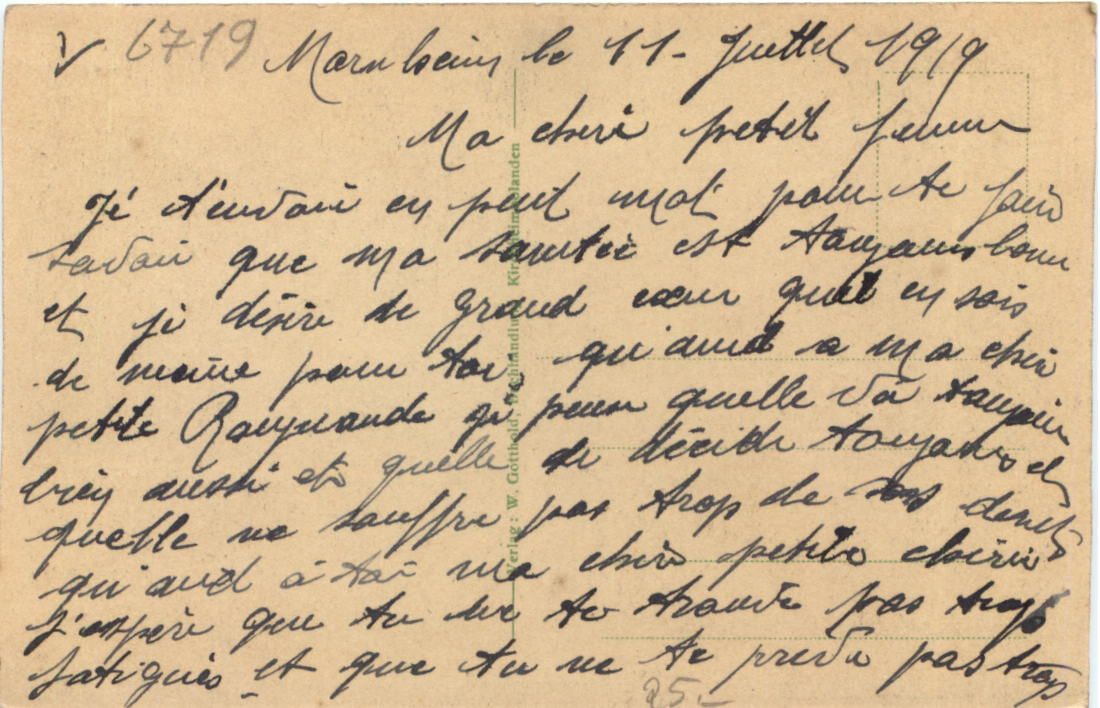 6719
Marnheim le 11- Juillet 1919
Ma cheri petit femme
Je t'envoie en petit mot pour te faire
savoir que ma santée est toujours bonne
et je désire de grand cœur quel en sois
de meme pour toi, qu'and a ma cher
petite Raymonde je pense quelle va toujours
bien aussi et quelle se décide toujours et
quelle ne souffre pas trop de ses dents
qu'and à toi ma cher petite chérie
J'espère que tu ne te trouve pas trop
fatiguès et que tu ne te prive pas trop
25-
Verlag: W. Gotthold, Buchhandlung, Kirchheimbolanden